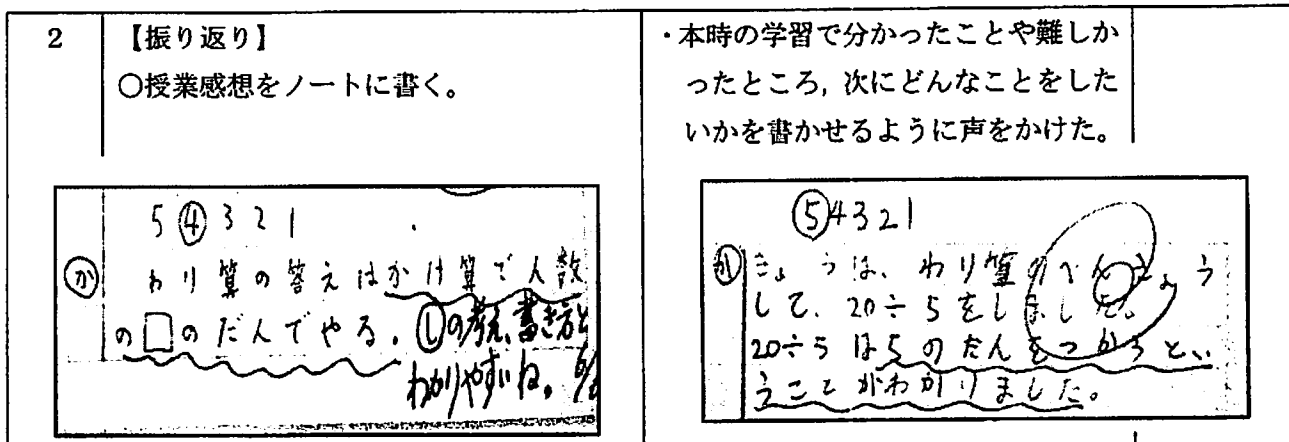 2 【振り返り】
○授業感想をノートに書く。
・本時の学習で分かったことや難しか
ったところ，次にどんなことをした
いかを書かせるように声をかけた。
5 ④ 3 2 1
か わり算の答えはかけ算で人数
の□のだんでやる。
の考え、書き方と
わかりやすいね。
⑤ 4 3 2 1
か きょうは、わり算のべんきょう
して、20÷5をしました。
20÷5は5のだんをつかうとい
うことがわかりました。